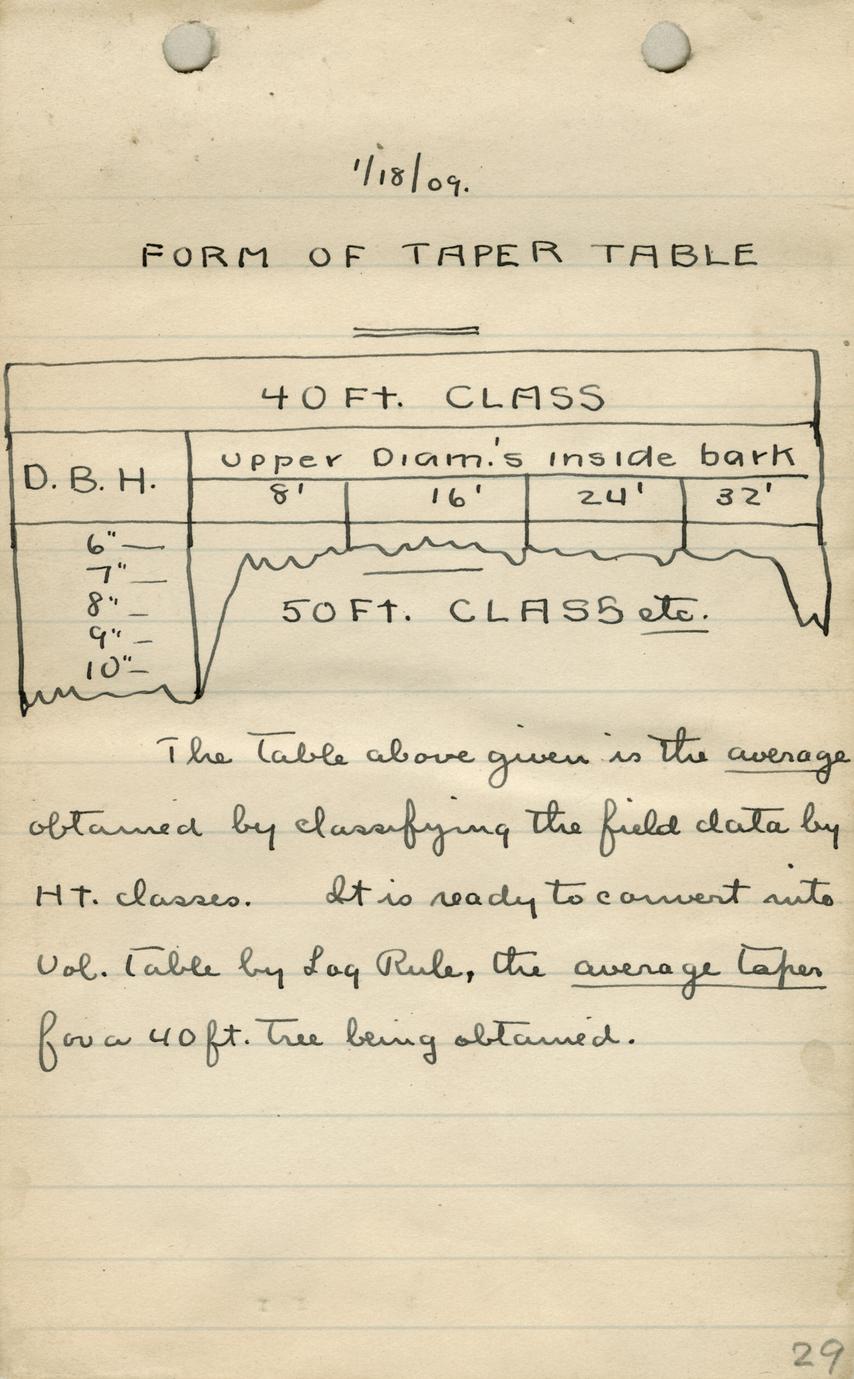 1/18/09.
FORM OF TAPER TABLE
40 Ft. CLASS
D.B.H.
Upper Diam.'s inside bark
8' 16' 24' 32'
6"—
7"—
8"—
9"—
10"—
50 Ft. CLASS etc.
The table above given is the average
obtained by classifying the field data by
Ht. classes. It is ready to convert into
Vol. table by Log Rule, the average taper
for a 40 ft. tree being obtained.
29